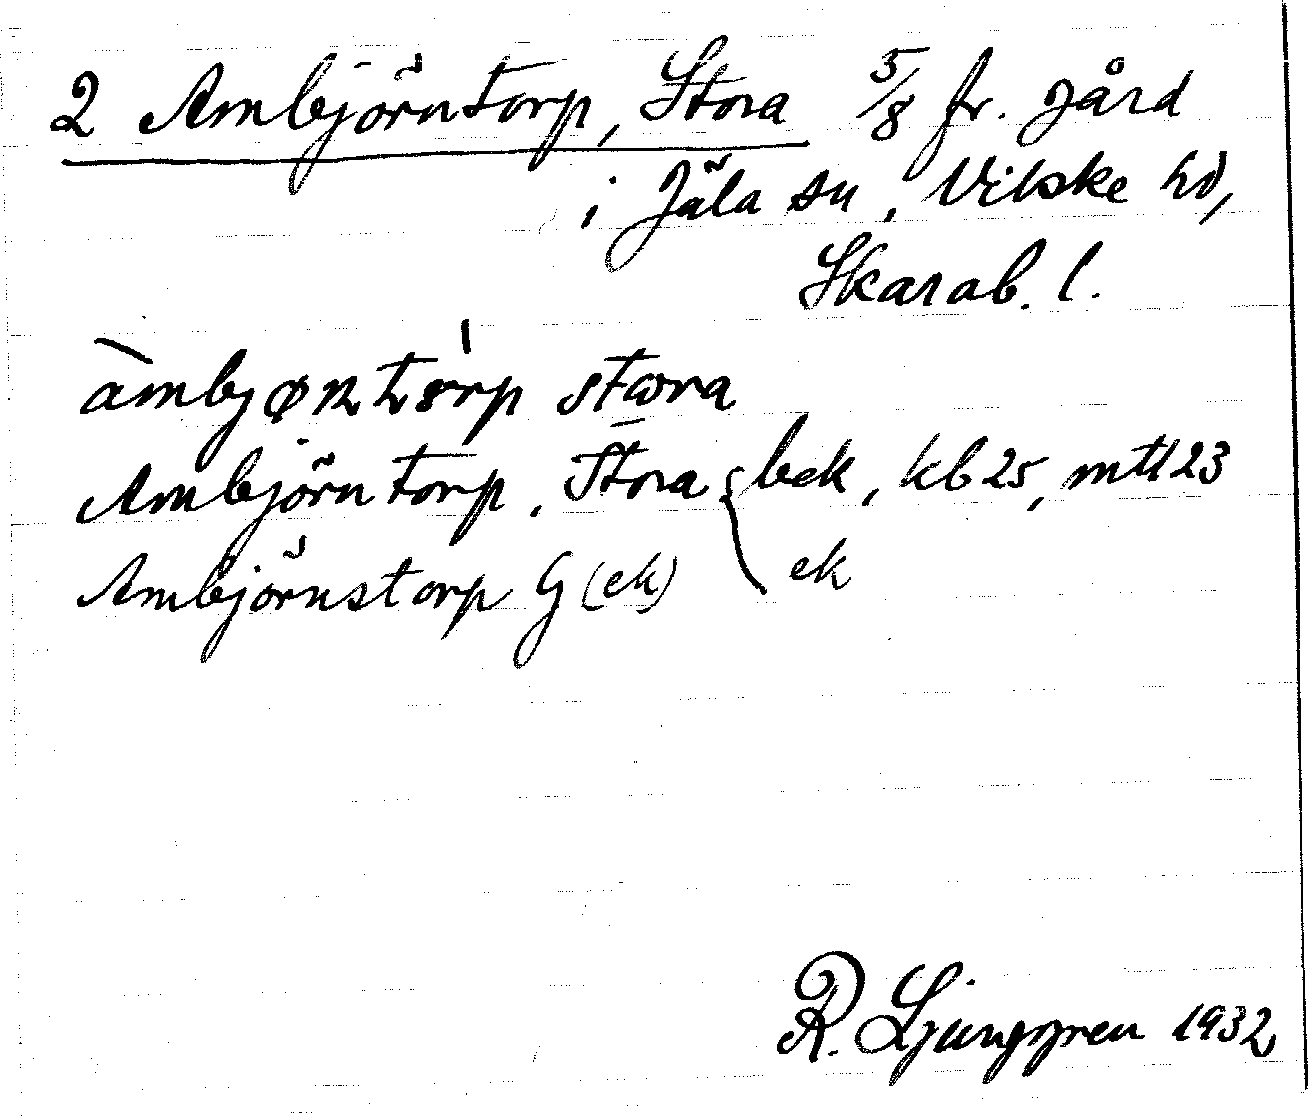 2 Ambjörntorp, Stora 5/8 fr. gård
i Jäla sn, Vilske hd,
Skarab. l.
àmbjøn torp stora
Ambjörntorp, Stora { bek, kb 25, mtl 23
Ambjörnstorp G (ek) ek
R. Ljunggren 1932